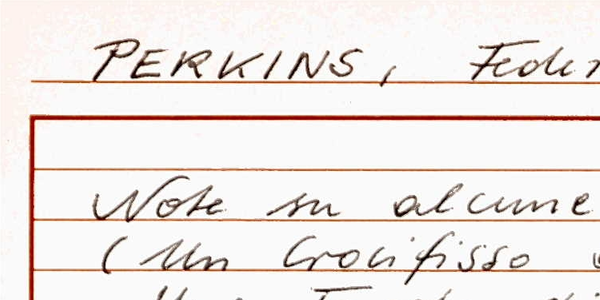 PERKINS, Feder
Note su alcune
( Un Crocifisso